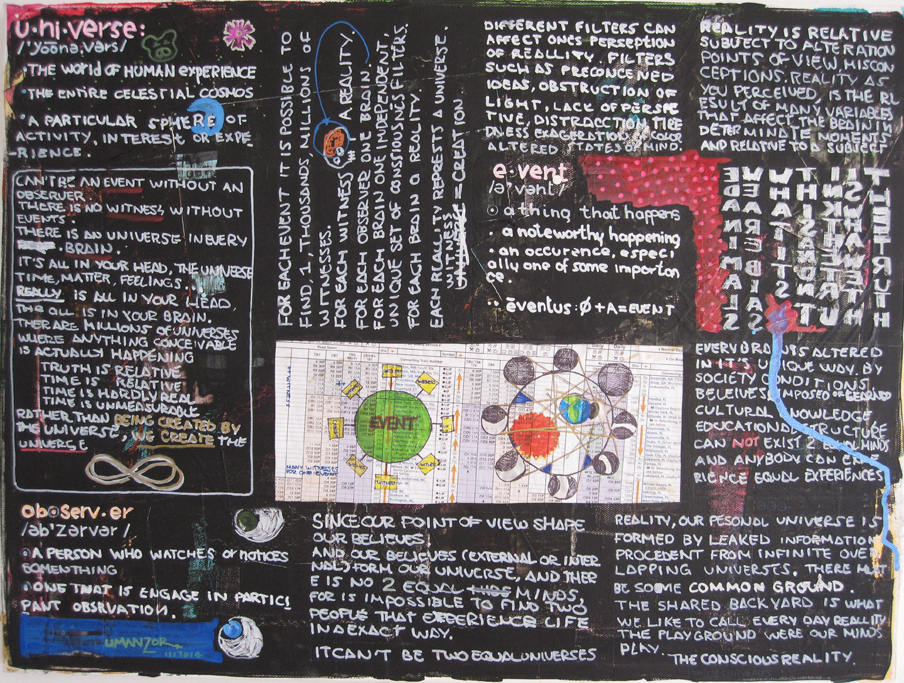 u·ni·verse:
/'yoonə,vərs/
·THE WORLD OF HUMAN EXPERIENCE
·THE ENTIRE CELESTIAL COSMOS
·A PARTICULAR SPHERE OF
ACTIVITY, INTEREST, OR EXPE
-RIENE.
CAN'T BE AN EVENT WITHOUT AN
OBSERVER
THERE IS NO WITNESS WITHOUT
EVENTS
THERE IS AN UNIVERSE IN EVERY
BRAIN.
IT'S ALL IN YOUR HEAD, THE UNIVERSE
TIME, MATTER, FEELINGS,
REALLY IS ALL IN YOUR HEAD.
THE ALL IS IN YOUR BRAIN.
THER ARE MILLIONS OF UNIVERSES
WHERE ANYTHING CONCEIVABLE
IS ACTUALLY HAPPENING
TRUTH IS RELATIVE
TIME IS RELATIVE
TIME IS HARDLY REAL
TIME IS UNMEASURABLE
RATHER THAN BEING CREATED BY
THE UNIVERSE, WE CREATE THE
UNIVERSE
ob·serv·er
/əb'zərvər/
A PERSON WHO WATCHES or NOTICES
SOMENTHING
ONE THAT IS ENGAGE IN PARTICI
PANT OBSERVATION.
UMANZOR
FOR EACH EVENT IT IS POSSIBLE TO
FIND, 1, THOUSANDS, MILLIONS OF
WITNESSES.
FOR EACH WITNESS A REALITY.
FOR EACH OBSERVER ONE BRAIN.
FOR EACH BRAIN ONE INDEPENDENT,
UNIQUE SET OF CONSTIOUSNESS FILTERS,
FOR EACH BRAIN A REALITY.
EACH REALITY REPRESTS A UNIVERSE
WITNESS = CREATION
DIFFERENT FILTERS CAN
AFFECT ONES PERCEPTION
OF REALLITY. FILTERS
SUCH AS PRECONCE NED
IDEAS, OBSTRUCTION OF
LIGHT, LACK OF PERSPE
TIVE, DISTRACCTION TIRE
DNESS EXAGERATION, COLOR
ALTERED STATES OF MIND.
e·vent
/ə'vent/
a thing that happens
a noteworthy happening
an occurence, especi
ally one of some importan
ce.
ēventus: Ø + A = EVENT
REALITY IS RELATIVE
SUBJECT TO ALTERATION
POINTS OF VIEW MISCON
CEPTIONS, REALITY AS
YOU PERCEIVED, IS THE RE
ESULT OF MANY, VARIABLES
THAT AFFECT THE BRAIN IN
DETERMINATE MOMENTS
AND RELATIVE TO A SUBJECT
EVENT
WITNESS
MANY WITNESSES
FOR ONE EVENT
EVERY BRAIN IS ALTERED
IN IT'S UNIQUE WAY. BY
SOCIETY CONDITIONS,
BELEIVES IMPOSED or LEARND
CULTURAL KNOWLEDGE
EDUCATIONAL STRUCTURE
CAN NOT EXIST 2 EQUAL MINDS
AND ANYBODY CAN EXPE
RIENCE EQUAL EXPERIENCES
SINCE OUR POINT OF VIEW SHAPE
OUR BELIEVES
AND OUR BELIEVES (EXTERNAL OR INTER
NAL) FORM OUR UNIVERSE, AND THER
E IS NO 2 EQUAL MINDS,
FOR IS IMPOSSIBLE TO FIND TWO
PEOPLE THAT EXPERIENCE LIFE
IN A EXACT WAY.
IT CAN'T BE TWO EQUAL UNIVERSES
REALITY, OUR PESONAL UNIVERSE IS
FORMED BY LEAKED INFORMATION
PROCEDENT FROM INFINITE OVER
LAPPING UNIVERSES. THERE MUST
BE SOOME COMMON GROUND.
THE SHARED BACKYARD IS WHAT
WE LIKE TO CALL EVERY DAY REALITY
THE PLAYGROUND WERE OUR MINDS
PLAY.
THE CONSCIOUS REALITY.